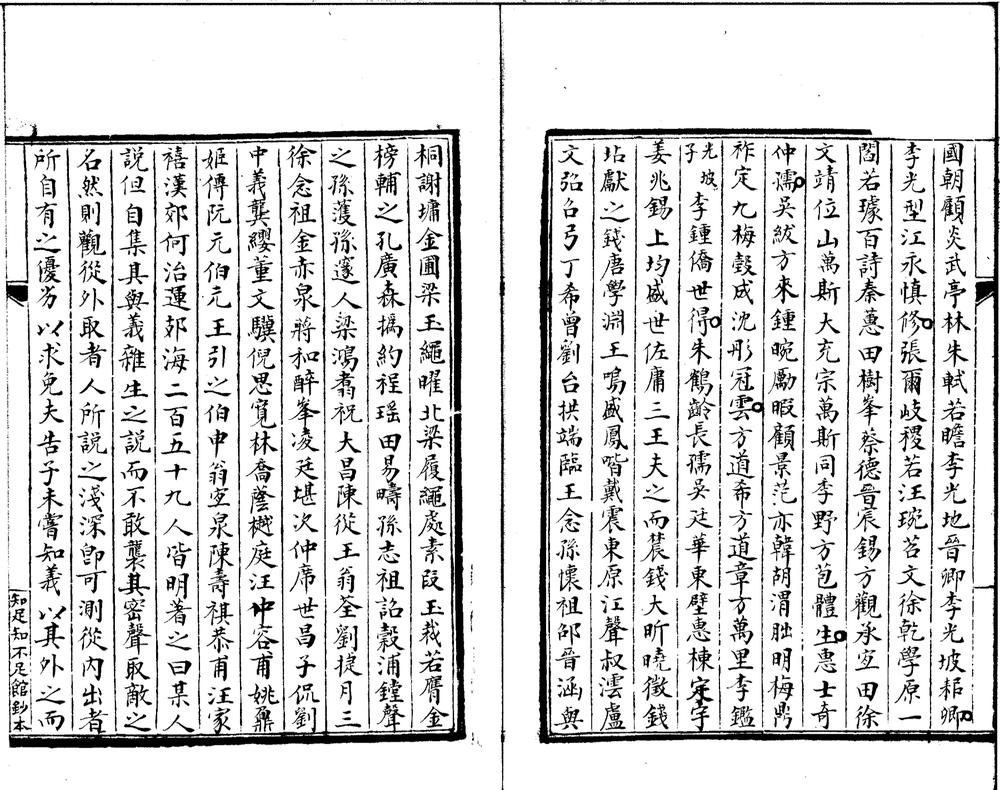 國朝顧炎武亭林朱軾若瞻李光地晉卿李光坡耜卿
李光型江永慎修張爾岐稷若汪琬苕文徐乾學原一
閻若璩百詩秦蕙田樹峯蔡德晉宸錫方觀承宜田徐
文靖位山萬斯大充宗萬斯同季野方苞體生惠士奇
仲孺吳紱方來鍾晼勵暇顧景范亦韓胡渭朏明梅鼎
祚定九梅瑴成沈彤冠雲方道希方道章方萬里李鑑
光坡子李鍾僑世得朱鶴齡長孺吳廷華東壁惠棟定宇
姜兆錫上均盛世佐庸三王夫之而農錢大昕曉徵錢
坫獻之錢唐學淵王鳴盛鳳喈戴震東原江聲叔澐盧
文弨召弓丁希曾劉台拱端臨王念孫懷祖邵晉涵與
桐謝墉金圃梁玉繩曜北梁履繩處素段玉裁若膺金
榜輔之孔廣森撝約程瑤田易疇孫志祖詒穀浦鏜聲
之孫蒦孫邃人梁鴻翥祝大昌陳從王翁荃劉捷月三
徐念祖金赤泉蔣和醉峯凌廷堪次仲席世昌子侃劉
中義龔纓董文驥倪思寬林喬蔭樾庭汪中容甫姚鼐
姬傳阮元伯元王引之伯申翁宜泉陳壽祺恭甫汪家
禧漢郊何治運郊海二百五十九人皆明著之曰某人
說但自集其與義雜生之說而不敢襲其密聲取敵之
名然則觀從外取者人所說之淺深即可測從內出者
所自有之優劣以求免夫告子未嘗知義以其外之而
知足知不足館鈔本